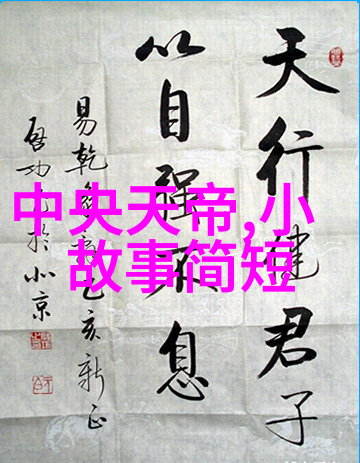 中央天帝,小
故事简短
天行健君子
以自强不息
易乾乙亥新正
啟功於北京